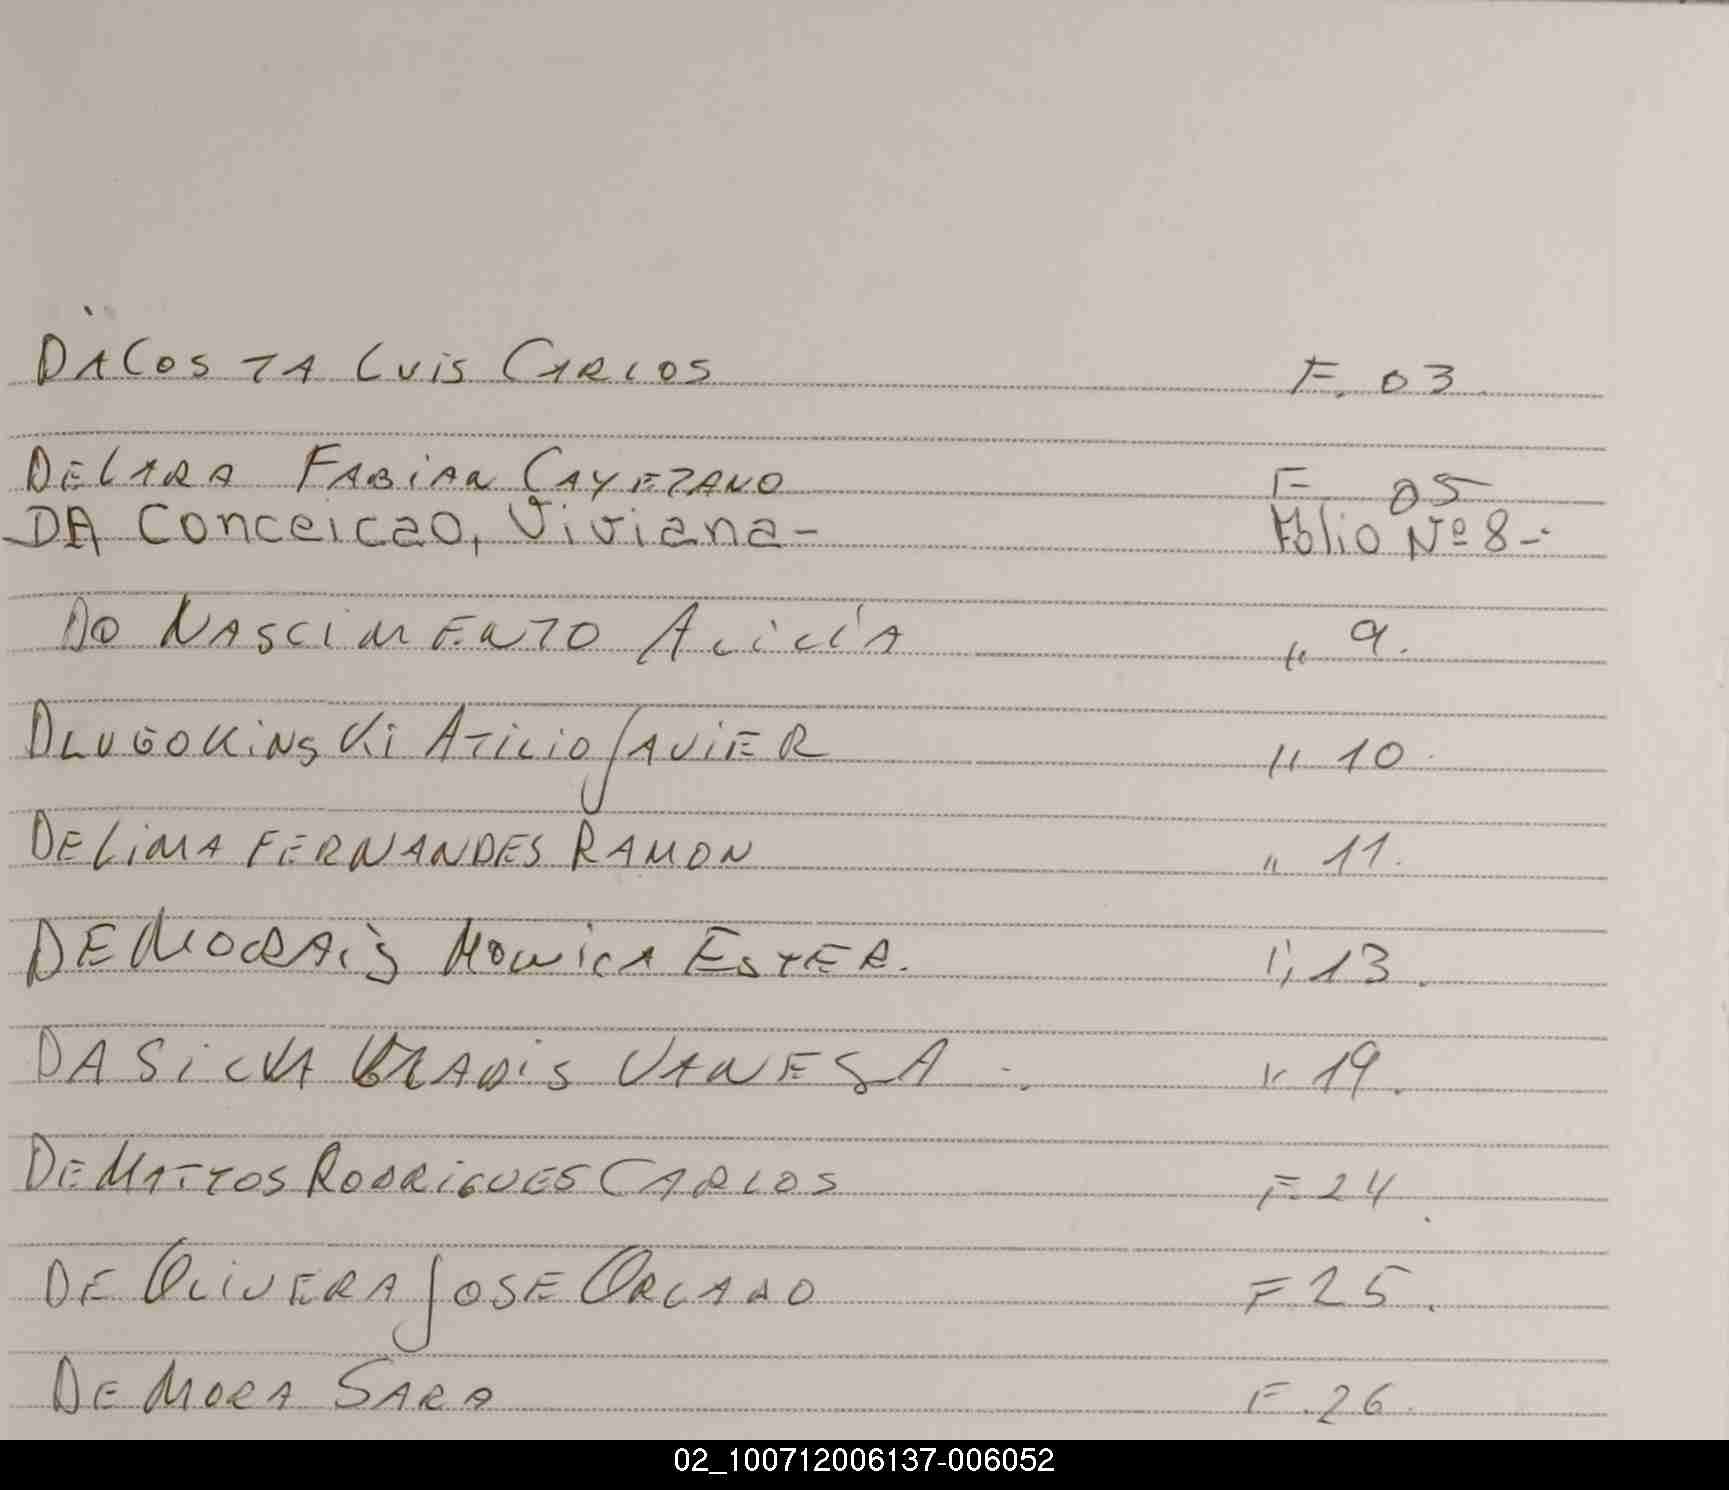 DACOSTA LUIS CARLOS F. 03.
DELARA FABIAN CAYETANO F 05
DA Conceicao, Viviana- Folio Nº 8-
DO NASCIMENTO ALICIA " 9.
DLUGOKINSKI ATILIO JAVIER " 10.
DELIMA FERNANDES RAMON " 11.
DEMORAIS MONICA ESTER. " 13.
DASILVA GLADIS VANESA -. " 19.
DEMATTOS RODRIGUES CARLOS F 24.
DE OLIVERA JOSE ORLADO F 25.
DE MORA SARA F. 26.
02_100712006137-006052